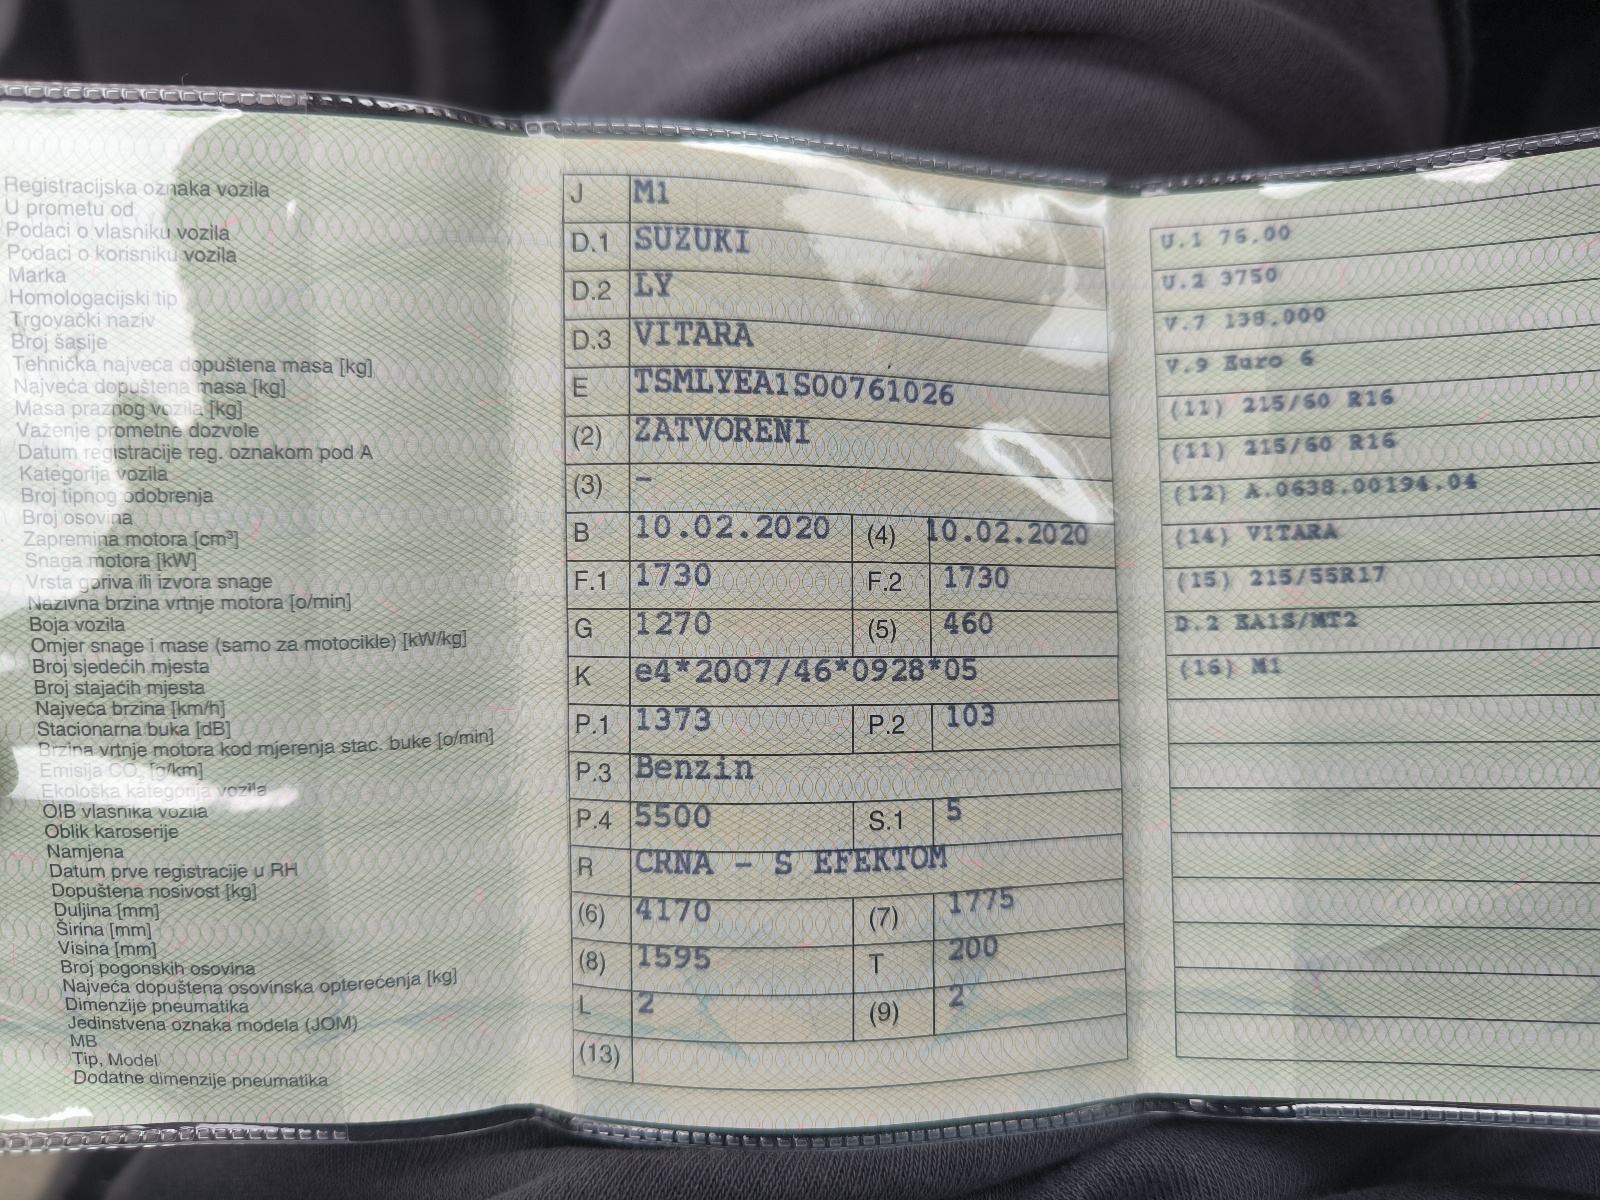 Registracijska oznaka vozila
U prometu od
Podaci o vlasniku vozila
Podaci o korisniku vozila
Marka
Homologacijski tip
Trgovački naziv
Broj šasije
Tehnička najveća dopuštena masa [kg]
Najveća dopuštena masa [kg]
Masa praznog vozila [kg]
Važenje prometne dozvole
Datum registracije reg. oznakom pod A
Kategorija vozila
Broj tipnog odobrenja
Broj osovina
Zapremina motora [cm³]
Snaga motora [kW]
Vrsta goriva ili izvora snage
Nazivna brzina vrtnje motora [o/min]
Boja vozila
Omjer snage i mase (samo za motocikle) [kW/kg]
Broj sjedećih mjesta
Broj stajaćih mjesta
Najveća brzina [km/h]
Stacionarna buka [dB]
Brzina vrtnje motora kod mjerenja stac. buke [o/min]
Emisija CO₂ [g/km]
Ekološka kategorija vozila
OIB vlasnika vozila
Oblik karoserije
Namjena
Datum prve registracije u RH
Dopuštena nosivost [kg]
Duljina [mm]
Širina [mm]
Visina [mm]
Broj pogonskih osovina
Najveća dopuštena osovinska opterećenja [kg]
Dimenzije pneumatika
Jedinstvena oznaka modela (JOM)
MB
Tip, Model
Dodatne dimenzije pneumatika
J M1
D.1 SUZUKI
D.2 LY
D.3 VITARA
E TSMLYEA1S00761026
(2) ZATVORENI
(3) –
B 10.02.2020 (4) 10.02.2020
F.1 1730 F.2 1730
G 1270 (5) 460
K e4*2007/46*0928*05
P.1 1373 P.2 103
P.3 Benzin
P.4 5500 S.1 5
R CRNA – S EFEKTOM
(6) 4170 (7) 1775
(8) 1595 T 200
L 2 (9) 2
(13)
U.1 76.00
U.2 3750
V.7 138.000
V.9 Euro 6
(11) 215/60 R16
(11) 215/60 R16
(12) A.0638.00194.04
(14) VITARA
(15) 215/55R17
D.2 EA1S/MT2
(16) M1